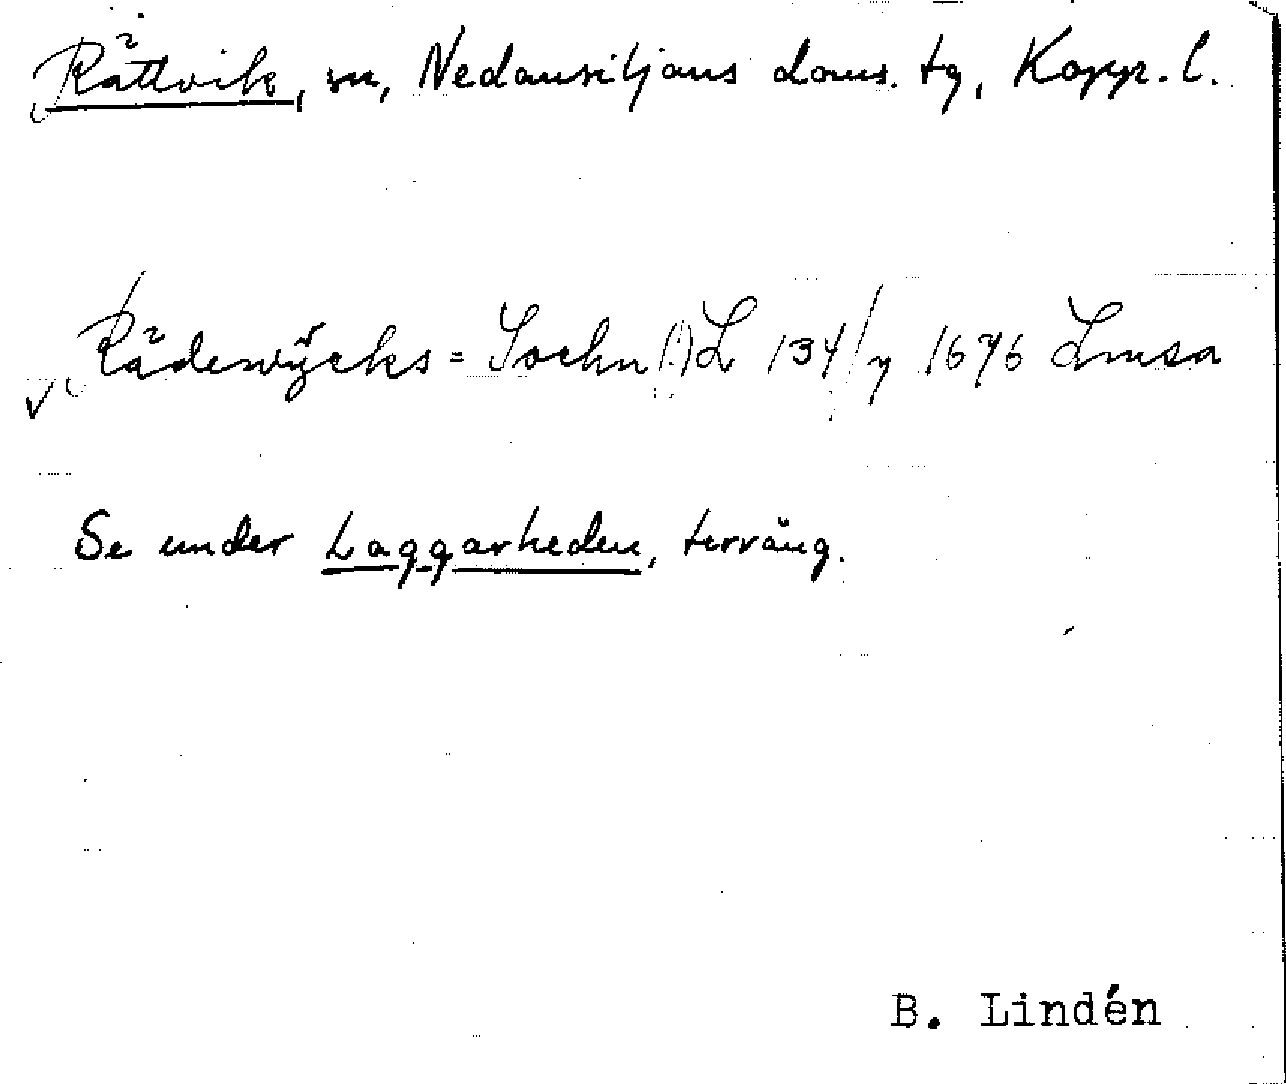 Rättvik, sn, Nedansiljans doms. tg, Kopp. l.
Rädewÿcks = Sochn (:) L 134/y 1696 Lmsa
Se under Laggarheden, terräng.
B. Lindén